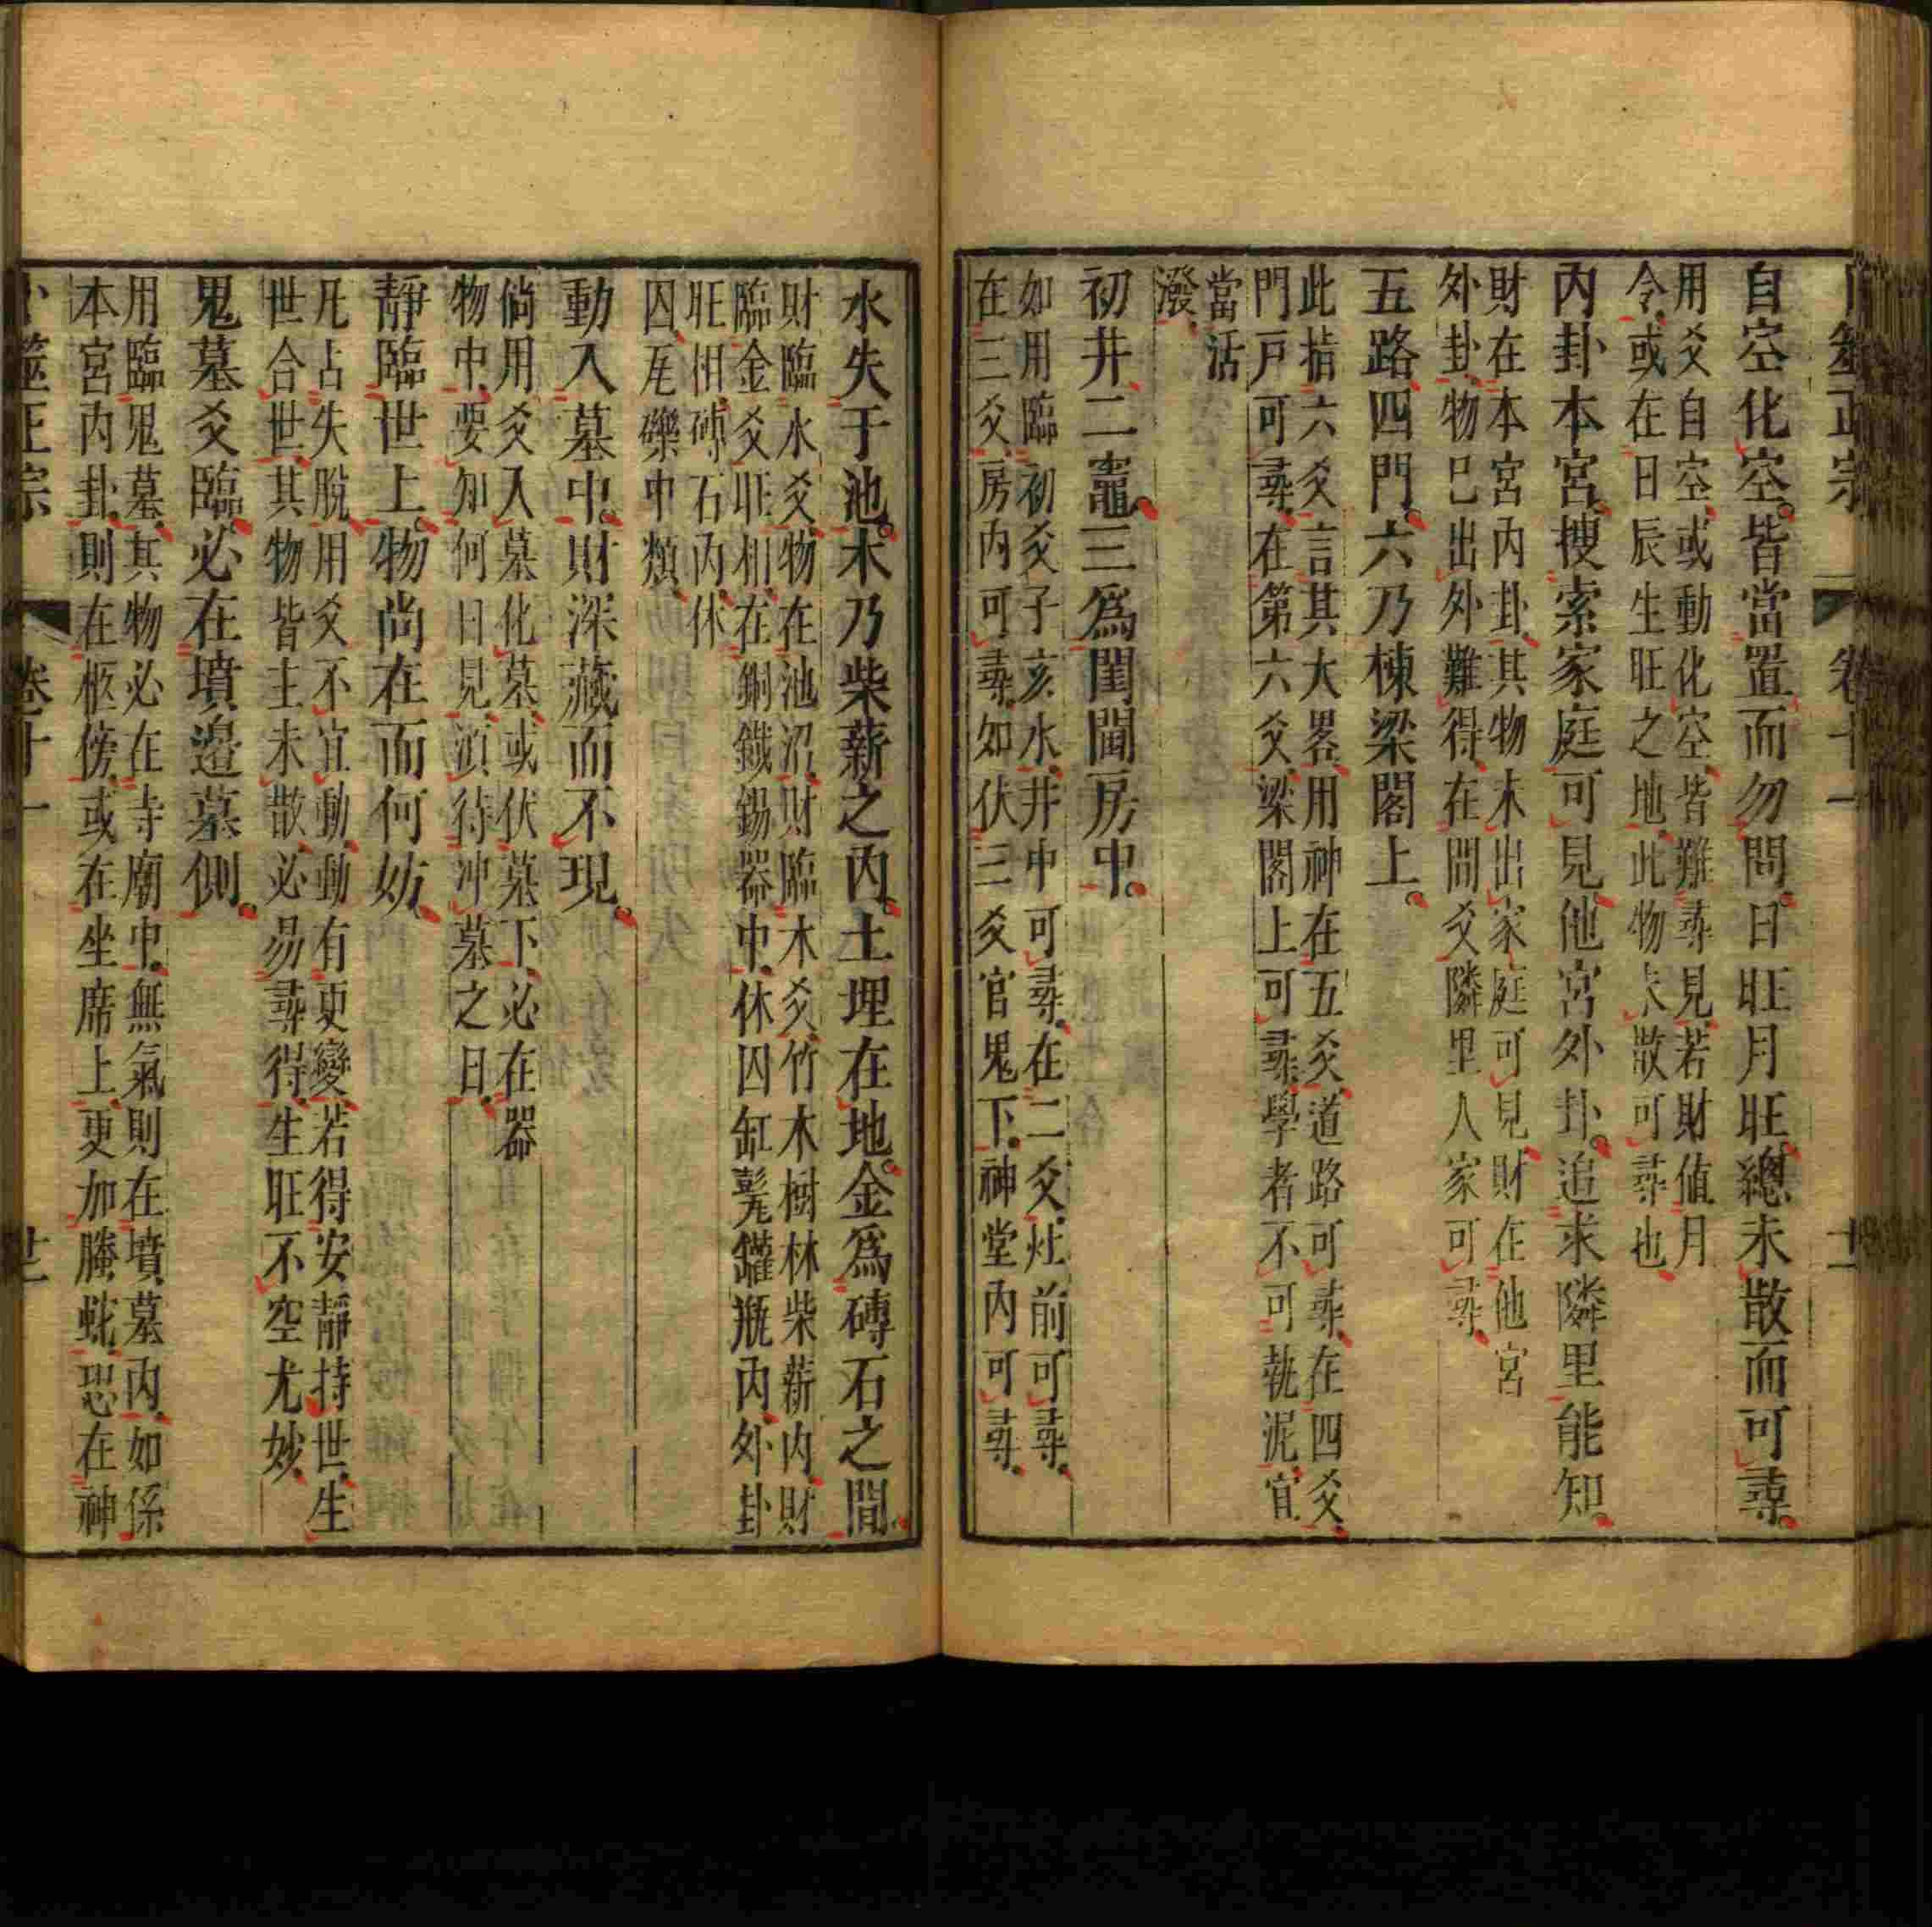 卜筮正宗 卷十一 十一
自空化空。皆當置而勿問。日旺月旺。總未散而可尋。
用爻自空、或動化空、皆難尋見、若財値月
令、或在日辰生旺之地、此物未散可尋也、
內卦本宮、搜索家庭可見、他宮外卦。追求隣里能知。
財在本宮內卦、其物未出家庭可見、財在他宮
外卦、物已出外難得、在間爻隣里人家可尋、
五路四門。六乃棟梁閣上。
此指六爻言其大畧、用神在五爻、道路可尋、在四爻、
門戸可尋、在第六爻、梁閣上可尋、學者不可執泥、宜
當活
潑、
初井、二竈、三爲閨閫房中。
如用臨初爻子亥水、井中可尋、在二爻、灶前可尋、
在三爻、房內可尋、如伏三爻官鬼下、神堂內可尋、
水失于池。木乃柴薪之內。土埋在地。金爲磚石之間。
財臨水爻、物在池沼、財臨木爻、竹木樹林柴薪內、財
臨金爻旺相、在銅鐵錫器中、休囚缸髼罐瓶內、外卦
旺相、磚石內、休
囚、瓦礫中類、
動入墓中。財深藏而不現。
倘用爻入墓化墓、或伏墓下、必在器
物中、要知何日見、湏待冲墓之日、
靜臨世上。物尚在而何妨。
凡占失脫、用爻不宜動、動有更變、若得安靜持世、生
世合世、其物皆主未散、必易尋得、生旺不空尤妙、
鬼墓爻臨。必在墳邉墓側。
用臨鬼墓、其物必在寺廟中、無氣則在墳墓內、如係
本宮內卦、則在柩傍、或在坐席上、更加螣蛇、恐在神
卜筮正宗 卷十一 廿一